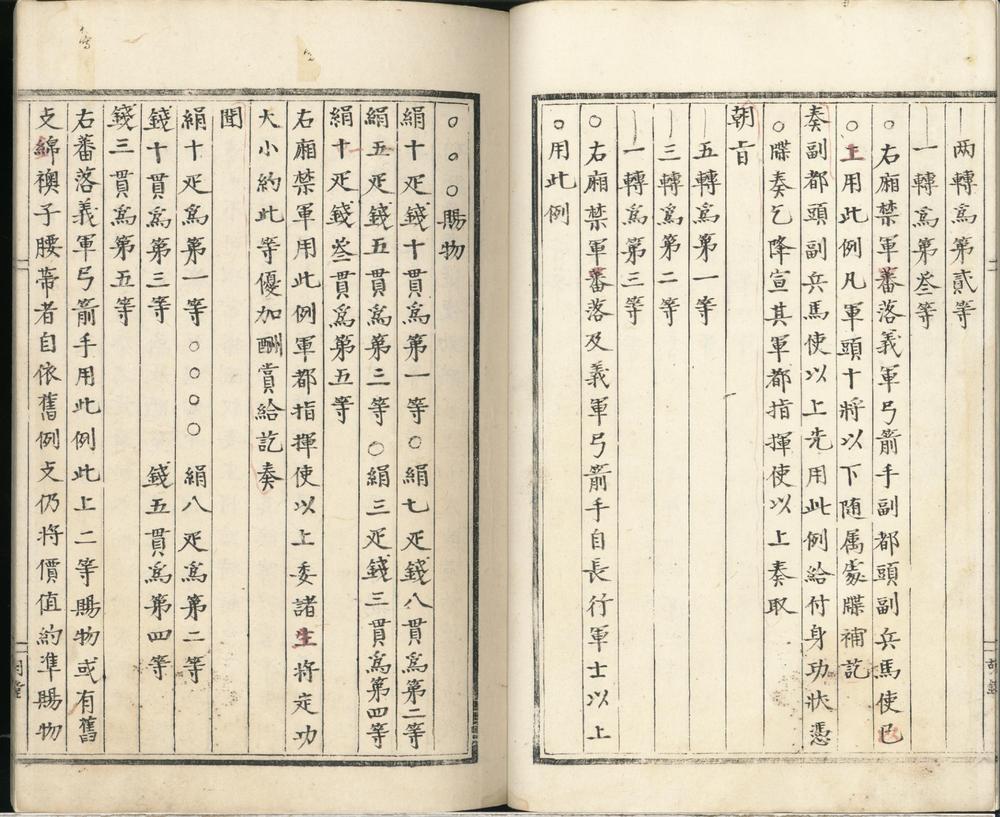 一两轉爲第貳等
一一轉爲第叄等
○右廂禁軍蕃落義軍弓箭手副都頭副兵馬使已
○上用此例凡軍頭十將以下随属處牒補訖
奏副都頭副兵馬使以上先用此例給付身功狀憑
○牒奏乞降宣其軍都指揮使以上奏取
朝旨
一五轉爲第一等
一三轉爲第二等
一一轉爲第三等
○右廂禁軍蕃落及義軍弓箭手自長行軍士以上
○用此例
○○○賜物
絹十疋錢十貫爲第一等○絹七疋錢八貫爲第二等
絹五疋錢五貫爲第三等○絹三疋錢三貫爲第四等
絹十疋錢叄貫爲第五等
右廂禁軍用此例軍都指揮使以上委諸生將定功
大小約此等優加酬賞給訖奏
聞
絹十疋爲第一等○○○○絹八疋爲第二等
錢十貫爲第三等　錢五貫爲第四等
錢三貫爲第五等
右蕃落義軍弓箭手用此例此上二等賜物或有舊
支綿襖子腰帶者自依舊例支仍將價值約準賜物